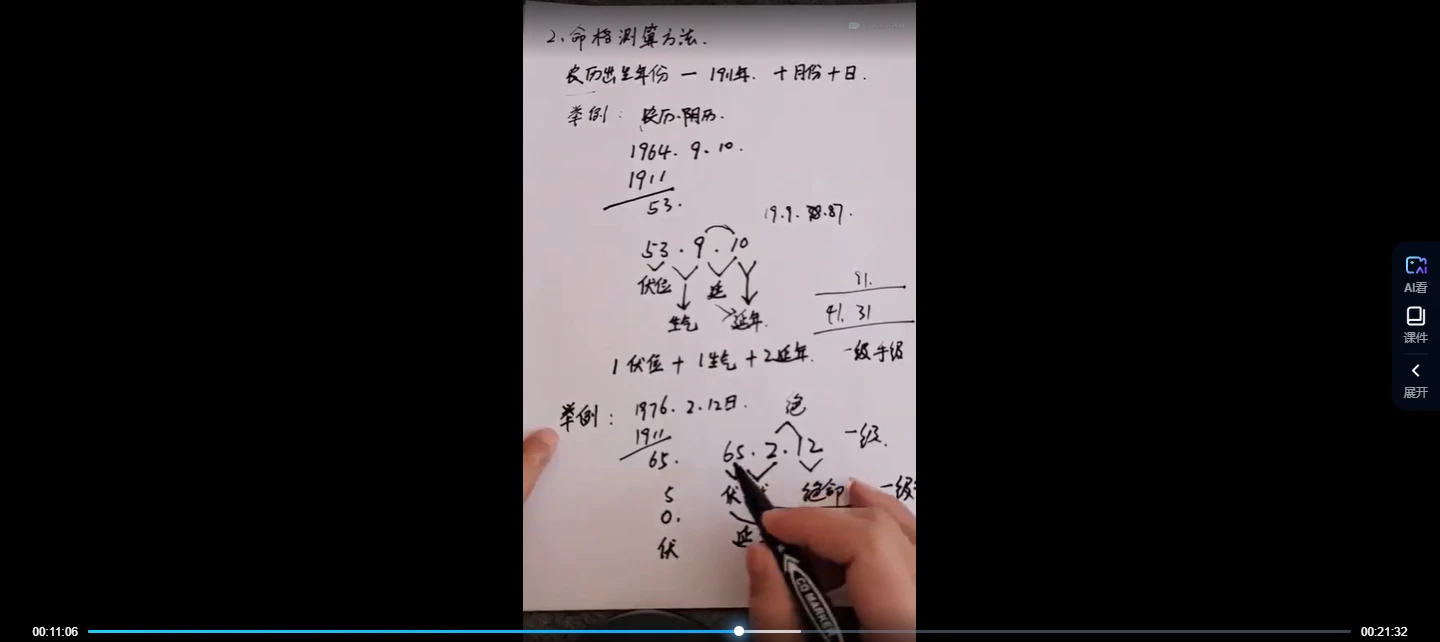 2、命格测算方法.
农历出生年份 — 1911年. 十月份十日.
举例: 农历.阴历.
1964. 9. 10.
1911
53.
19.9. .87.
53. 9. 10
伏位 延
生气 延年.
91.
41. 31
1伏位 + 1生气 + 2延年. 一级手级
举例: 1976. 2. 12日. 绝
1911
65.
65. 2. 12 一级.
5 伏 绝命 一级
0. 延
伏
CD MARKER
AI看
课件
展开
00:11:06
00:21:32